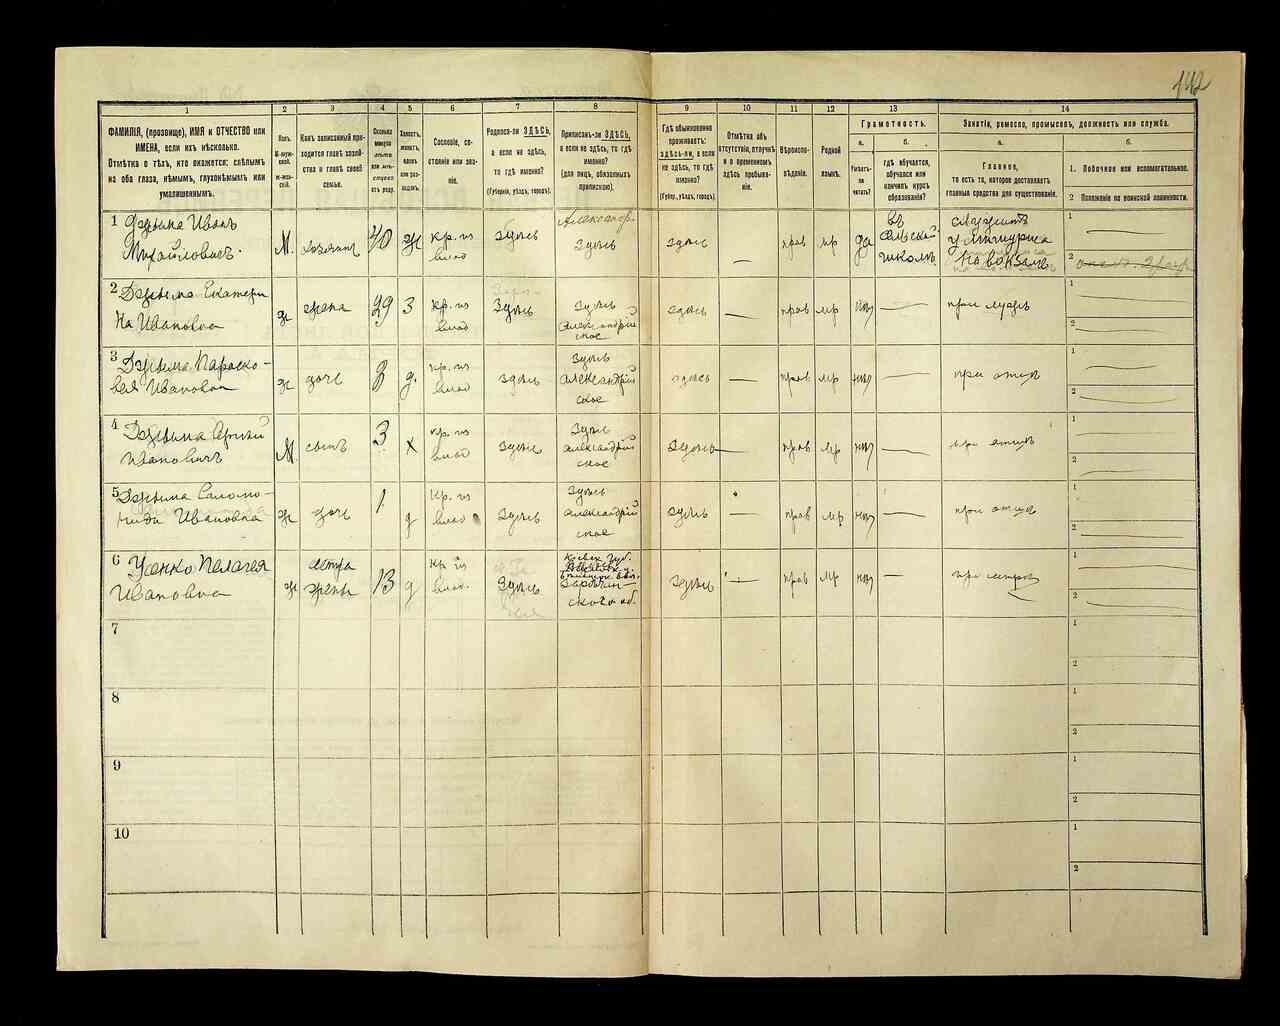 142
1 2 3 4 5 6 7 8 9 10 11 12 13 14
ФАМИЛІЯ, (прозвище), ИМЯ и ОТЧЕСТВО или
ИМЕНА, если ихъ нѣсколько.
Отмѣтка о тѣхъ, кто окажется: слѣпымъ
на оба глаза, нѣмымъ, глухонѣмымъ или
умалишеннымъ.
Полъ.
М-муж-
ской.
Ж-жен-
скій.
Какъ записанный при-
ходится главѣ хозяй-
ства и главѣ своей
семьи.
Сколько
минуло
лѣтъ
или мѣ-
сяцевъ
отъ роду.
Холостъ,
женатъ,
вдовъ
или раз-
веденъ.
Сословіе, со-
стояніе или зва-
ніе.
Родился-ли ЗДѢСЬ,
а если не здѣсь,
то гдѣ именно?
(Губернія, уѣздъ, городъ).
Приписанъ-ли ЗДѢСЬ,
а если не здѣсь, то гдѣ
именно?
(для лицъ, обязанныхъ
припискою).
Гдѣ обыкновенно
проживаетъ:
здѣсь-ли, а если
не здѣсь, то гдѣ
именно?
(Губер., уѣздъ, городъ).
Отмѣтка объ
отсутствіи, отлучкѣ
и о временномъ
здѣсь пребыва-
ніи.
Вѣроиспо-
вѣданіе.
Родной
языкъ.
Грамотность.
а.
Умѣетъ-
ли
читать?
б.
гдѣ обучается,
обучался или
кончилъ курсъ
образованія?
Занятіе, ремесло, промыселъ, должность или служба.
а.
Главное,
то есть то, которое доставляетъ
главныя средства для существованія.
б.
1. Побочное или вспомогательное.
2 Положеніе по воинской повинности.
1 Иванъ
Михайловичъ.
М. хозяинъ 40 ж кр. из влад здѣсь Александр. здѣсь здѣсь — прав мр да въ сельской школѣ служитъ на вокзалѣ 1 — 2
2 Екатери
на Ивановна
ж жена 29 З кр. из влад здѣсь здѣсь Александрій ское здѣсь — прав мр нѣт — при мужѣ 1 — 2 —
3 Параско-
вея Ивановна
ж дочь 8 д. кр. из влад здѣсь здѣсь Александрій ское здѣсь — прав мр нѣт — при отцѣ 1 — 2 —
4
Ивановичъ
М. сынъ 3 х кр. из влад здѣсь здѣсь Александрій ское здѣсь — прав мр нѣт — при отцѣ 1 — 2 —
5 Саломо-
нида Ивановна
ж дочь 1 д кр. из влад здѣсь здѣсь Александрій ское здѣсь — прав мр нѣт — при отцѣ 1 — 2 —
6 Усенко Пелагея
Ивановна
ж сестра жены 13 д кр из влад. здѣсь Киевск. губ. здѣсь — прав мр нѣт — при сестрѣ 1 — 2 —
7 1 2
8 1 2
9 1 2
10 1 2